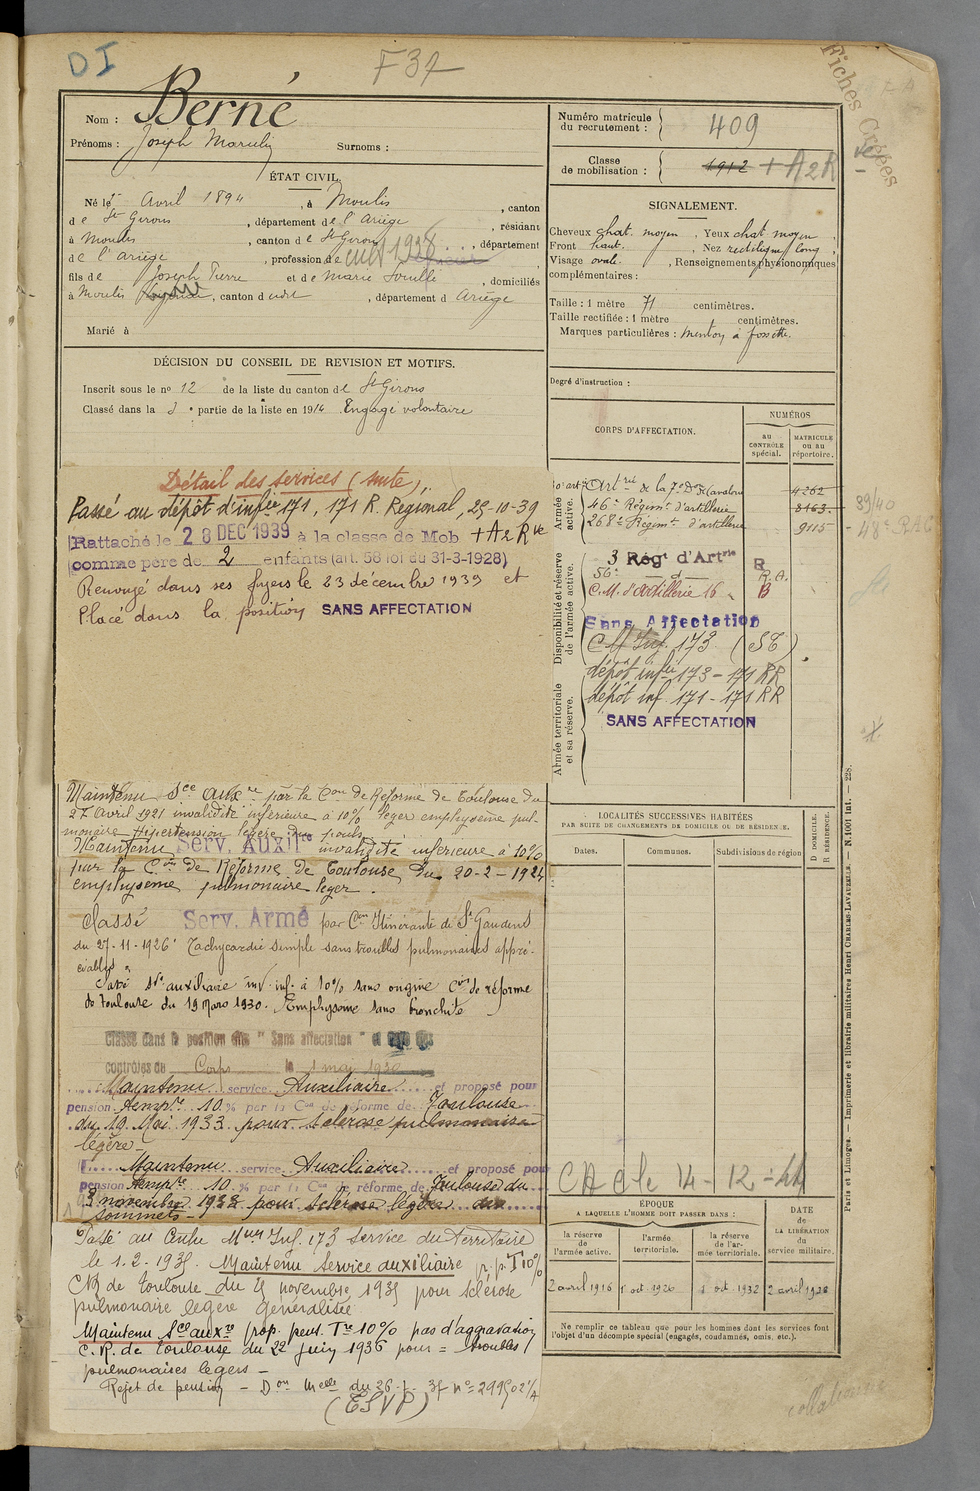 DI
F37
Fiches Créées
Nom : Berné
Prénoms : Joseph Marcelin Surnoms :
ÉTAT CIVIL.
Né le 5 Avril 1894, à Moulis, canton
de St Girons, département de l'Ariège, résidant
à Moulis, canton de St Girons, département
de l'Ariège, profession de cult 1928
fils de Joseph Pierre et de Marie, domiciliés
à Moulis, canton dudit, département d Ariège
Marié à
DÉCISION DU CONSEIL DE REVISION ET MOTIFS.
Inscrit sous le no 12 de la liste du canton de St Girons
Classé dans la 3e partie de la liste en 1914 Engagé volontaire
Détail des services (suite).
Passé au dépôt d'infie 171, 171 R. Régional, 25-10-39
Rattaché le 28 DEC 1939 à la classe de Mob + A2Rve
comme père de 2 enfants (art. 58 loi du 31-3-1928)
Renvoyé dans ses foyers le 23 décembre 1939 et
Placé dans la position SANS AFFECTATION
Maintenu Sce Auxre par la Con de Réforme de Toulouse du
27 Avril 1921 invalidité inférieure à 10% léger emphysème pul-
monaire Hypertension légère du pouls
Maintenu Serv. Auxilre invalidité inférieure à 10%
par la Con de Réforme de Toulouse du 20-2-1924
emphysème pulmonaire léger.
Classé Serv. Armé par Con Itinérante de St Gaudens
du 27-11-1926 Tachycardie simple sans troubles pulmonaires appré-
ciables
Passé Sce auxiliaire inv. inf. à 10% sans origine Con de réforme
de Toulouse du 19 Mars 1930. Emphysème sans bronchite
Classé dans la position dite "Sans affectation" et rayé des
contrôles du Corps le 1 mai 1930
Maintenu service Auxiliaire et proposé pour
pension tempre 10 % par la Con de réforme de Toulouse
du 19 Mai 1933 pour sclérose pulmonaire
légère
Maintenu service Auxiliaire et proposé pour
pension Tempre 10 % par la Con de réforme de Toulouse du
3 novembre 1933 pour sclérose légère des
sommets
Passé au Centre Meur Inf. 173 Service du Territoire
le 1.2.1935. Maintenu Service auxiliaire p. p. T 10%
CR de Toulouse du novembre 1935 pour sclérose
pulmonaire légère généralisée
Maintenu Sce auxre prop. pens. Tre 10% pas d'aggravation
C. R. de Toulouse du 22 juin 1936 pour = troubles
pulmonaires légers
Rejet de pension - Don Melle du 26
(ESVP)
Numéro matricule
du recrutement : 409
Classe
de mobilisation : 1912 + A2Rve
SIGNALEMENT.
Cheveux chat. moyen, Yeux chat moyen
Front haut., Nez rectiligne long
Visage ovale., Renseignements physionomiques
complémentaires :
Taille : 1 mètre 71 centimètres.
Taille rectifiée : 1 mètre centimètres.
Marques particulières : menton à fossette.
Degré d'instruction :
CORPS D'AFFECTATION.
NUMÉROS
AU CONTRÔLE spécial.
MATRICULE ou au répertoire.
Armée active.
Artrie de la 7e Don de Cavalerie 4262
46e Régimt d'artillerie 8163
268e Régimt d'artillerie 9115
39/40
48e RAC
Disponibilité et réserve de l'armée active.
3 Régt d'Artrie R
56e d R.A.
C.M. d'artillerie 16 B
Sans Affectation
CM Inf. 173 (ST)
dépôt infie 173 - 171 RR
Armée territoriale et sa réserve.
dépôt inf. 171 - 171 RR
SANS AFFECTATION
LOCALITÉS SUCCESSIVES HABITÉES
PAR SUITE DE CHANGEMENTS DE DOMICILE OU DE RÉSIDENCE.
Dates. Communes. Subdivisions de région
D DOMICILE.
R RÉSIDENCE.
ÉPOQUE
A LAQUELLE L'HOMME DOIT PASSER DANS :
la réserve de l'armée active.
l'armée territoriale.
la réserve de l'armée territoriale.
DATE DE LA LIBÉRATION du service militaire.
2 avril 1916 1 oct. 1926 1 oct. 1932 2 avril 1928
Ne remplir ce tableau que pour les hommes dont les services font
l'objet d'un décompte spécial (engagés, condamnés, omis, etc.).
Paris et Limoges. — Imprimerie et librairie militaires Henri CHARLES-LAVAUZELLE. — N. 1001 int. — 228.